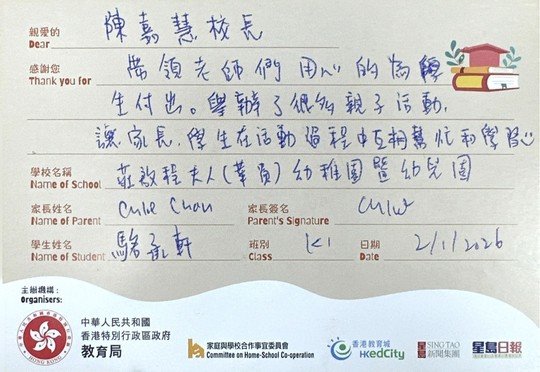 親愛的
Dear 陳嘉慧校長
感謝您
Thank you for 帶領老師們用心的為學
生付出。舉辦了很多親子活動,
讓家長、學生在活動過程中互相幫忙和學習
學校名稱
Name of School 莊啟程夫人(華員)幼稚園暨幼兒園
家長姓名 家長簽名
Name of Parent Chloe Chau Parent's Signature
學生姓名 班別 日期
Name of Student 駱承軒 Class K1 Date 2/1/2026
主辦機構:
Organisers:
中華人民共和國
香港特別行政區政府
教育局
HONG KONG
家庭與學校合作事宜委員會
Committee on Home-School Co-operation
香港教育城
HKedCity
SING TAO
新聞集團
星島日報